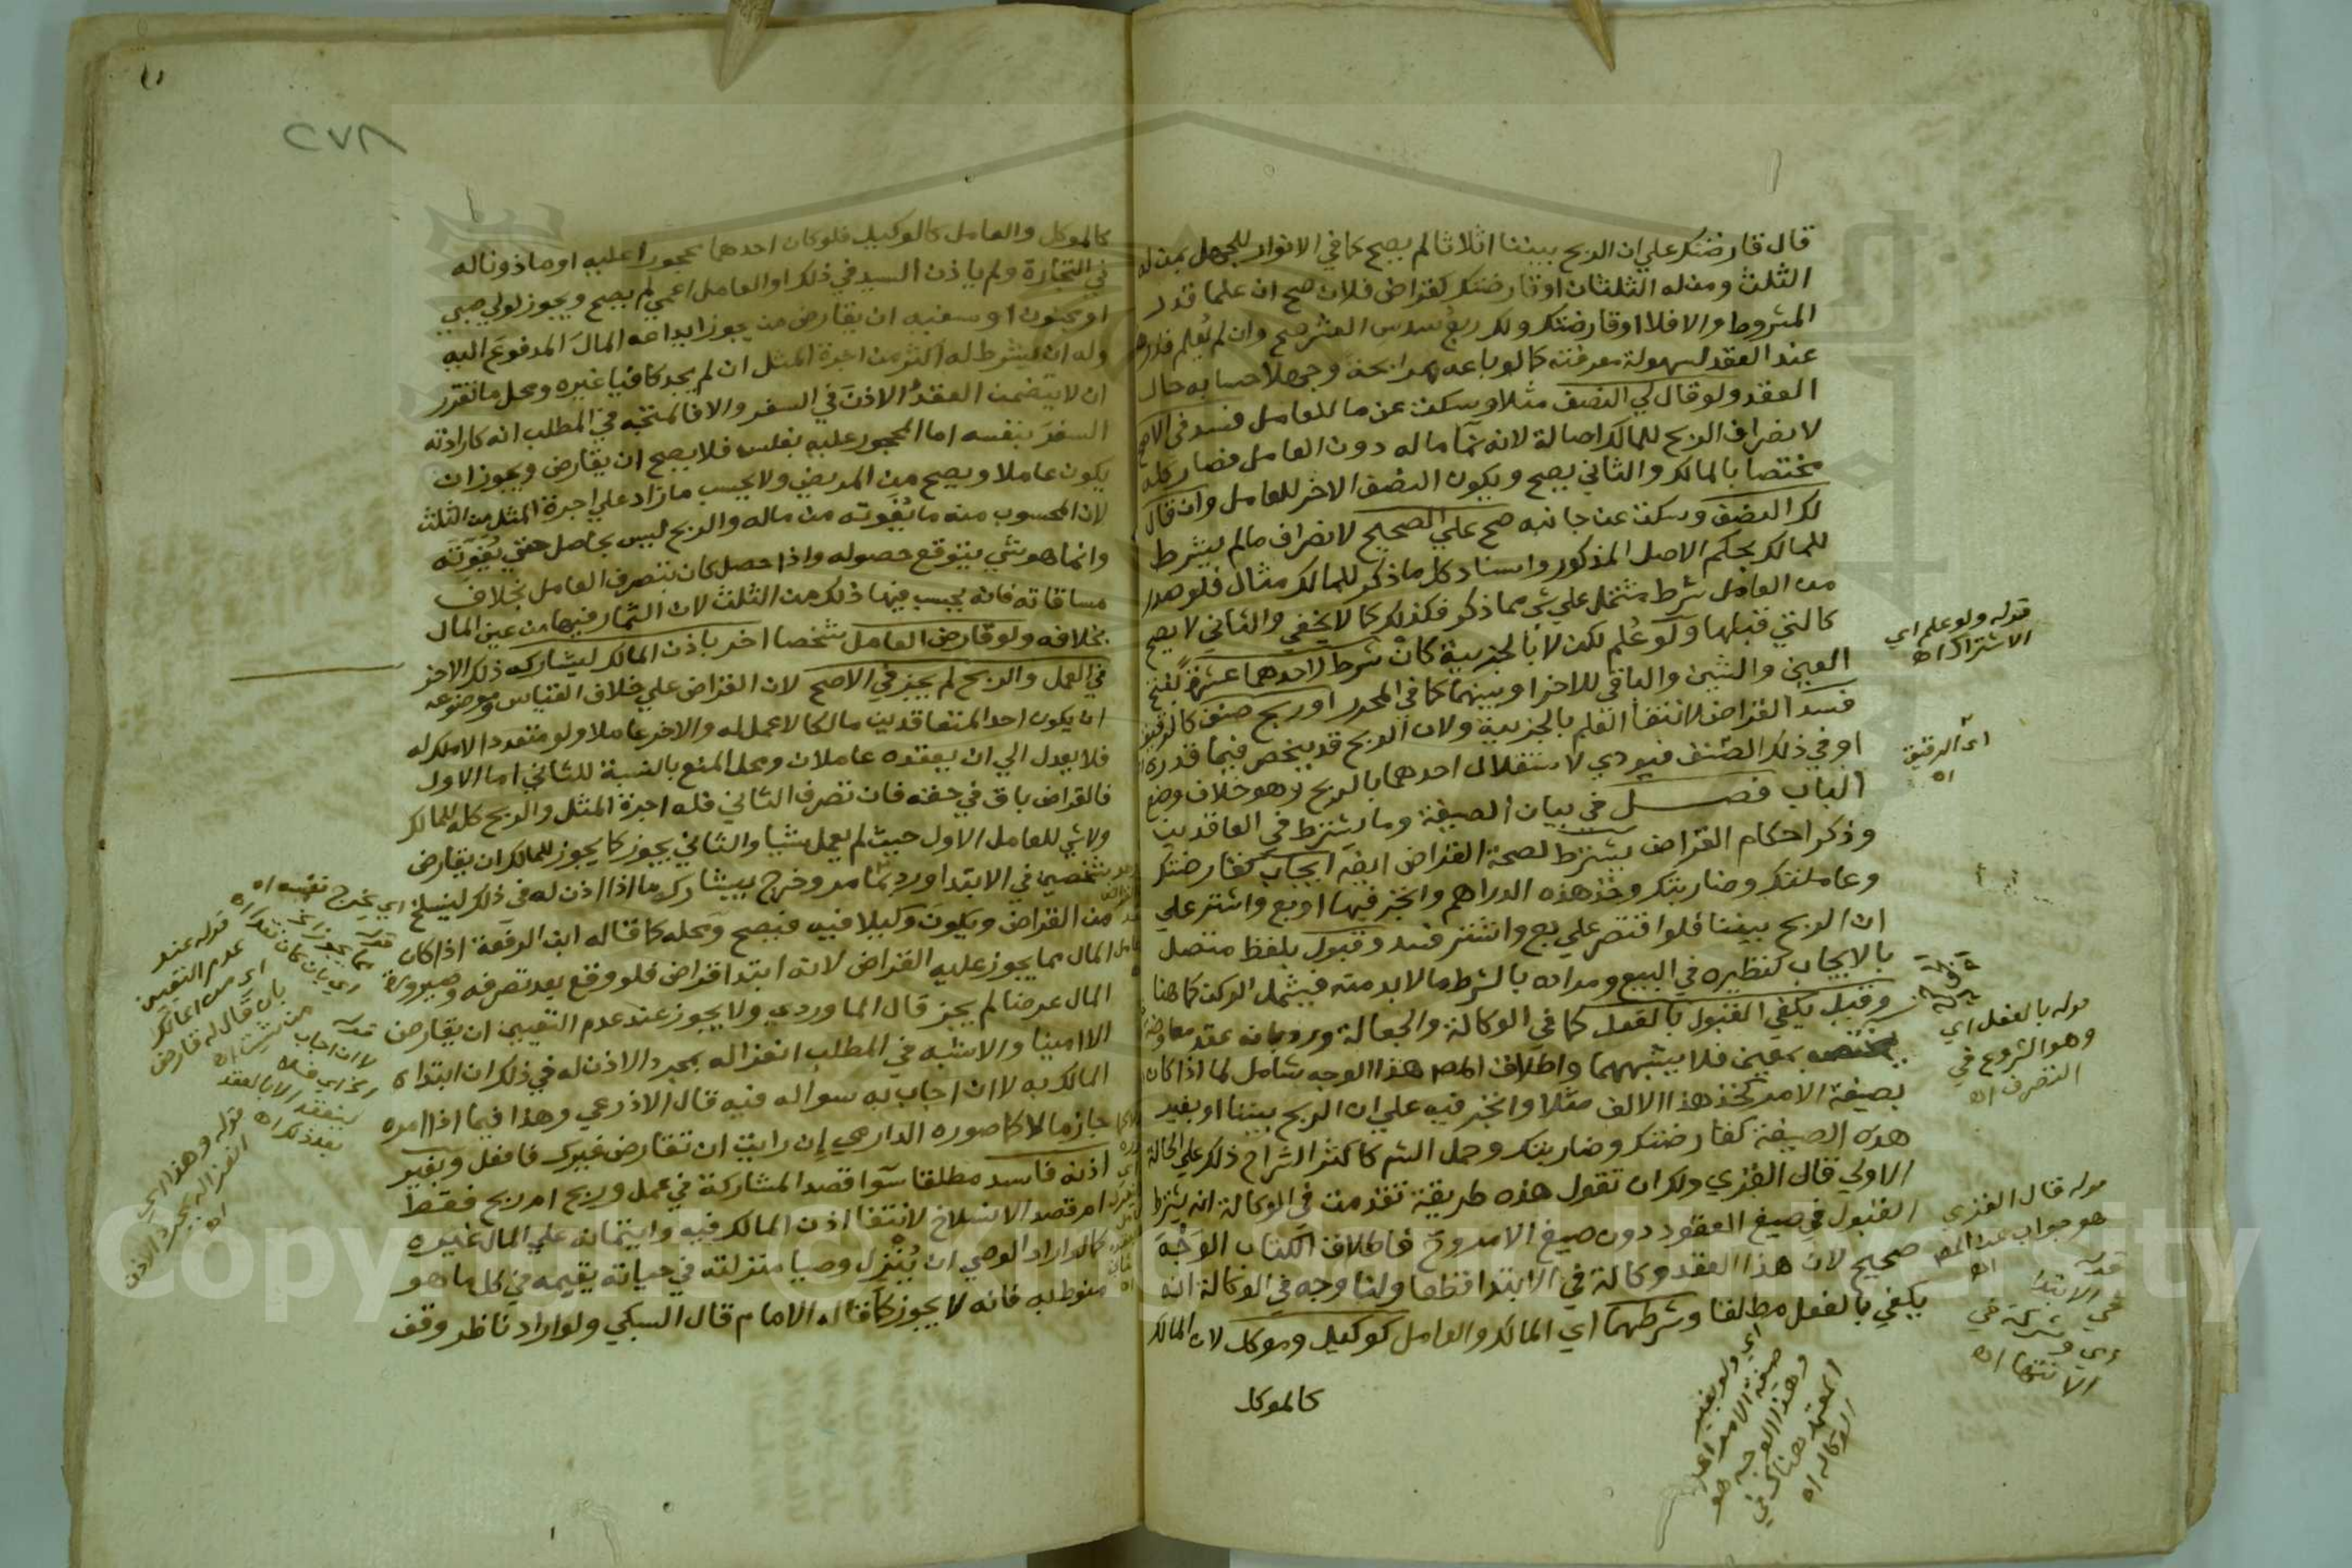 قال قارضتك علي ان الربح بيننا اثلاثا لم يصح كما في الانوار للجهل بمن له
الثلث ومن له الثلثان او قارضتك كقراض فلان صح ان علما قدر
المشروط والا فلا او قارضتك ولك ربع سدس العشر صح وان لم يعلم قدره
عند العقد لسهولة معرفته كما لو باعه مرابحة وجهلا حسابه حال
العقد ولو قال لي النصف مثلا وسكت عن ما للعامل فسد في الاصح
لانصراف الربح للمالك اصالة لانه نما ماله دون العامل فصار كله
مختصا بالمالك والثاني يصح ويكون النصف الاخر للعامل وان قال
لك النصف وسكت عن جانبه صح علي الصحيح لانصراف مالم يشرط
للمالك بحكم الاصل المذكور واسناد كل ما ذكر للمالك مثال فلو صدر
من العامل شرط مشتمل علي شي مما ذكر فكذلك كما لا يخفي والثاني لا يصح
كالتي قبلها ولو علم لكن لا بالجزيية كان شرط لاحدهما عشرة بفتح
العين والشين والباقي للاخر او بينهما كما في المحرر او ربح صنف كالرقيق
فسد القراض لانتفا العلم بالجزيية ولان الربح قد ينحصر فيما قدره
او في ذلك الصنف فيودي لاستقلال احدهما بالربح وهو خلاف وضع
الباب فصل في بيان الصيغة وما يشترط في العاقدين
وذكر احكام القراض يشترط لصحة القراض ايضا ايجاب كقارضتك
وعاملتك وضاربتك وخذ هذه الدراهم واتجر فيها او بع واشتر علي
ان الربح بيننا فلو اقتصر علي بع واشتر فسد وقبول بلفظ متصل
بالايجاب كنظيره في البيع ومراده بالشرط ما لا بد منه فيشمل الركن كما هنا
وقيل يكفي القبول بالفعل كما في الوكالة والجعالة ورد بانه عقد معاوضة
يختص بمعين فلا يشبههما واطلاق المص هذا الوجه شامل لما اذا كان
بصيغة الامر كخذ هذا الالف مثلا واتجر فيه علي ان الربح بيننا او بغير
هذه الصيغة كقارضتك وضاربتك وحمل الشم كاكثر الشراح ذلك علي الحالة
الاولي قال الغزي ولك ان تقول هذه طريقة تقدمت في الوكالة انه يشترط
القبول في صيغ العقود دون صيغ الامر وح فاطلاق الكتاب الوجه
صحيح لان هذا العقد وكالة في الابتدا قطعا ولنا وجه في الوكالة انه
يكفي بالفعل مطلقا وشرطهما اي المالك والعامل كوكيل وموكل لان المالك
كالموكل
قوله ولو علم اي
الاشتراك اه
اي الرقيق
اه
قوله بالفعل اي
وهو الشروع في
التصرف اه
قوله قال الغزي
هو جواب عن المص
اه
قوله
في الابتدا
اي وشركة في
الانتها اه
اي ولو بغير
صيغة الامر اه
وهذا الوجه هو
المعتمد هناك في
الوكالة اه
٢٧٨
كالموكل والعامل كالوكيل فلو كان احدهما محجورا عليه او ماذونا له
في التجارة ولم ياذن السيد في ذلك او العامل اعمي لم يصح ويجوز لولي صبي
او مجنون او سفيه ان يقارض من يجوز ايداعه المال المدفوع اليه
وله ان يشرط له اكثر من اجرة المثل ان لم يجد كافيا غيره ومحل ما تقرر
ان لا يتضمن العقد الاذن في السفر والا فالمتجه في المطلب انه كارادته
السفر بنفسه اما المحجور عليه بفلس فلا يصح ان يقارض ويجوز ان
يكون عاملا ويصح من المريض ولا يحسب ما زاد علي اجرة المثل من الثلث
لان المحسوب منه ما يفوته من ماله والربح ليس بحاصل حتي يفوته
وانما هو شي يتوقع حصوله واذا حصل كان بتصرف العامل بخلاف
مساقاته فانه يحسب فيها ذلك من الثلث لان الثمار فيها من عين المال
بخلافه ولو قارض العامل شخصا اخر باذن المالك ليشاركه ذلك الاخر
في العمل والربح لم يجز في الاصح لان القراض علي خلاف القياس وموضوعه
ان يكون احد المتعاقدين مالكا لا عمل له والاخر عاملا ولو متعددا لا ملك له
فلا يعدل الي ان يعقده عاملان ومحل المنع بالنسبة للثاني اما الاول
فالقراض باق في حقه فان تصرف الثاني فله اجرة المثل والربح كله للمالك
ولا شي للعامل الاول حيث لم يعمل شيا والثاني يجوز كما يجوز للمالك ان يقارض
شخصين في الابتدا ورد بما مر وخرج بيشاركه ما اذا اذن له في ذلك لينسلخ
من القراض ويكون وكيلا فيه فيصح ومحله كما قاله ابن الرفعة اذا كان
المال مما يجوز عليه القراض لانه ابتدا قراض فلو وقع بعد تصرفه وصيرورة
المال عرضا لم يجز قال الماوردي ولا يجوز عند عدم التعيين ان يقارض
الا امينا والاشبه في المطلب انعزاله بمجرد الاذن له في ذلك ان ابتداه
المالك به لا ان اجاب به سواله فيه قال الاذرعي وهذا فيما اذا امره
جازما لا كما صوره الدارمي ان رايت ان تقارض غيرك فافعل وبغير
اذنه فاسد مطلقا سوا قصد المشاركة في عمل وربح ام ربح فقط
ام قصد الانسلاخ لانتفا اذن المالك فيه وايتمانه علي المال غيره
كما لو اراد الوصي ان ينزل وصيا منزلته في حياته يقيمه في كل ما هو
منوط به فانه لا يجوز كما قاله الامام قال السبكي ولو اراد ناظر وقف
اي يخرج نفسه اه
قوله عند
عدم التعيين
اي من المالك
بان قال له قارض
من شئت اه
قوله
لا ان اجاب
قوله وهذا اي
انعزاله بمجرد الاذن
اه
Copyright © King Saud University